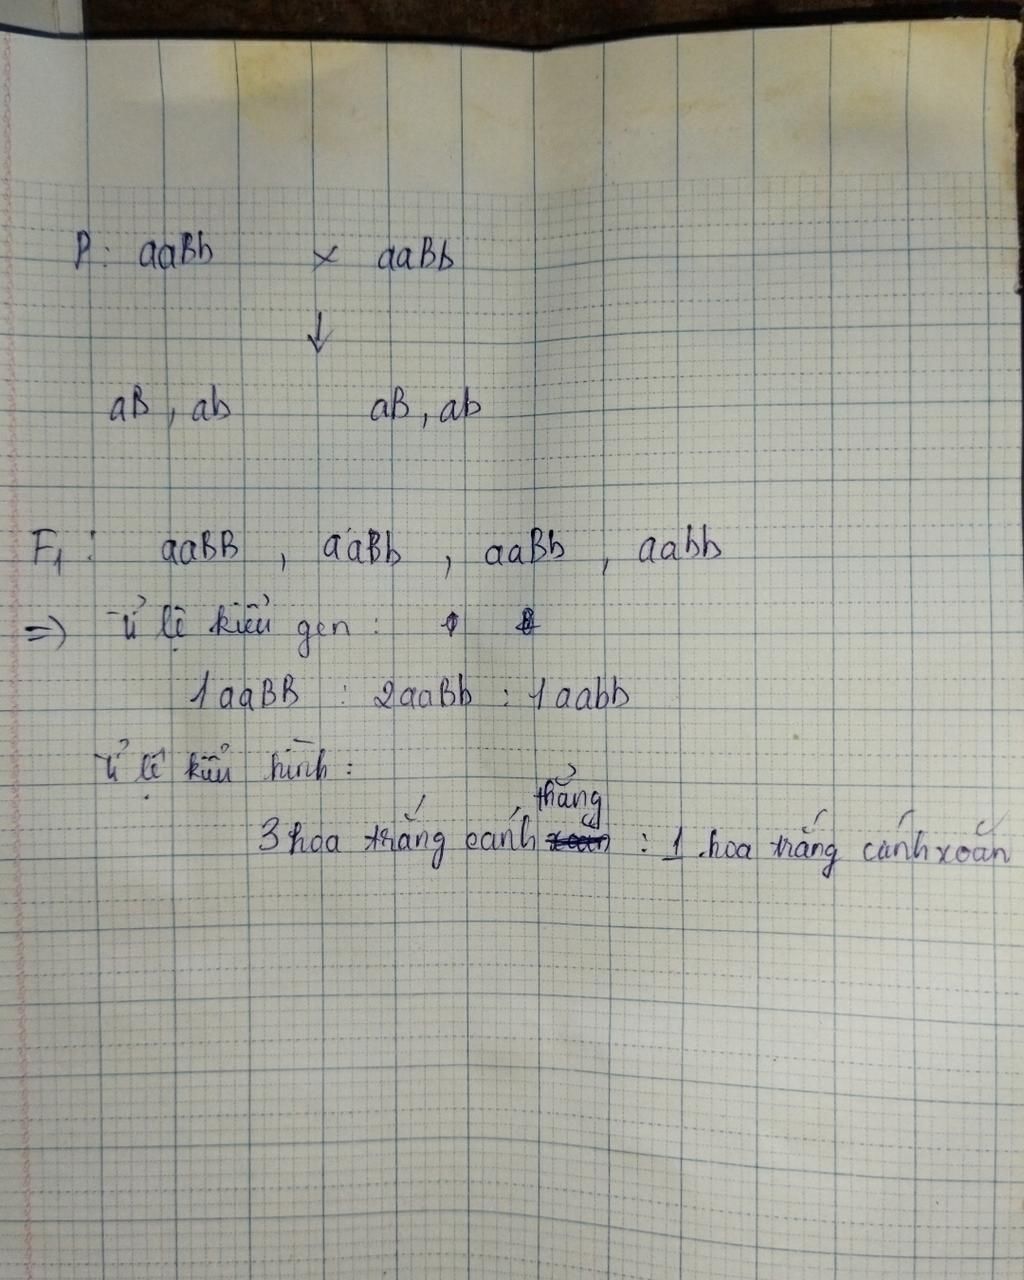 P: aaBb × aaBb
↓
aB, ab aB, ab
F₁: aaBB, aaBb, aaBb, aabb
=> Tỉ lệ kiểu gen:
1aaBB : 2aaBb : 1aabb
Tỉ lệ kiểu hình:
thẳng
3 hoa trắng cánh : 1 hoa trắng cánh xoăn